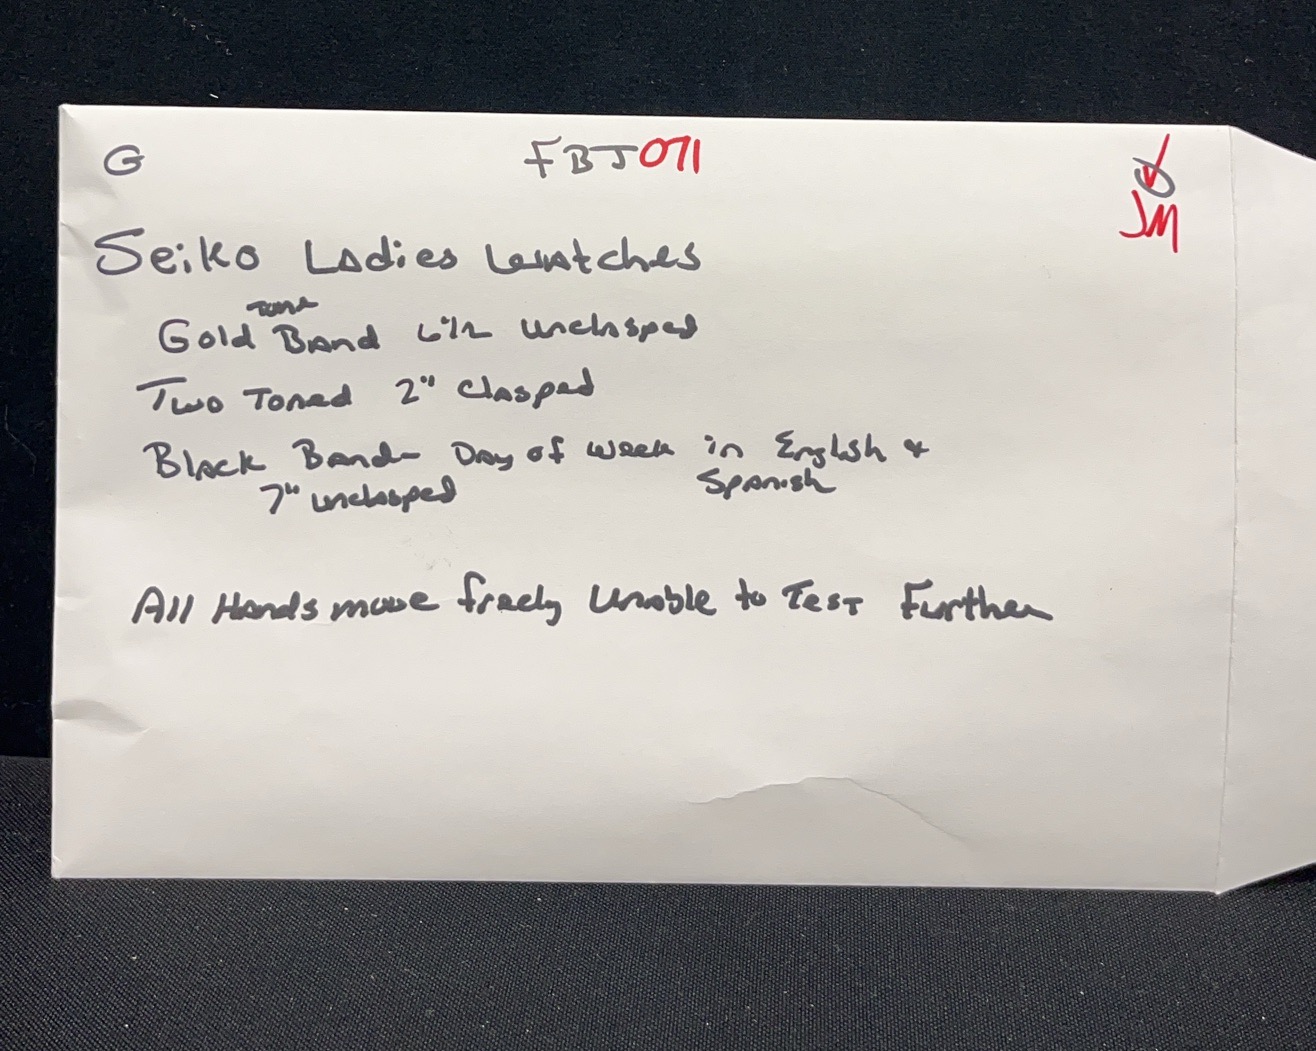 G FBJ071
JM
Seiko Ladies Watches
Gold Tone Band 6½ unclasped
Two Toned 2" clasped
Black Band - Day of week in English &
Spanish
7" unclasped
All Hands move freely Unable to Test Further